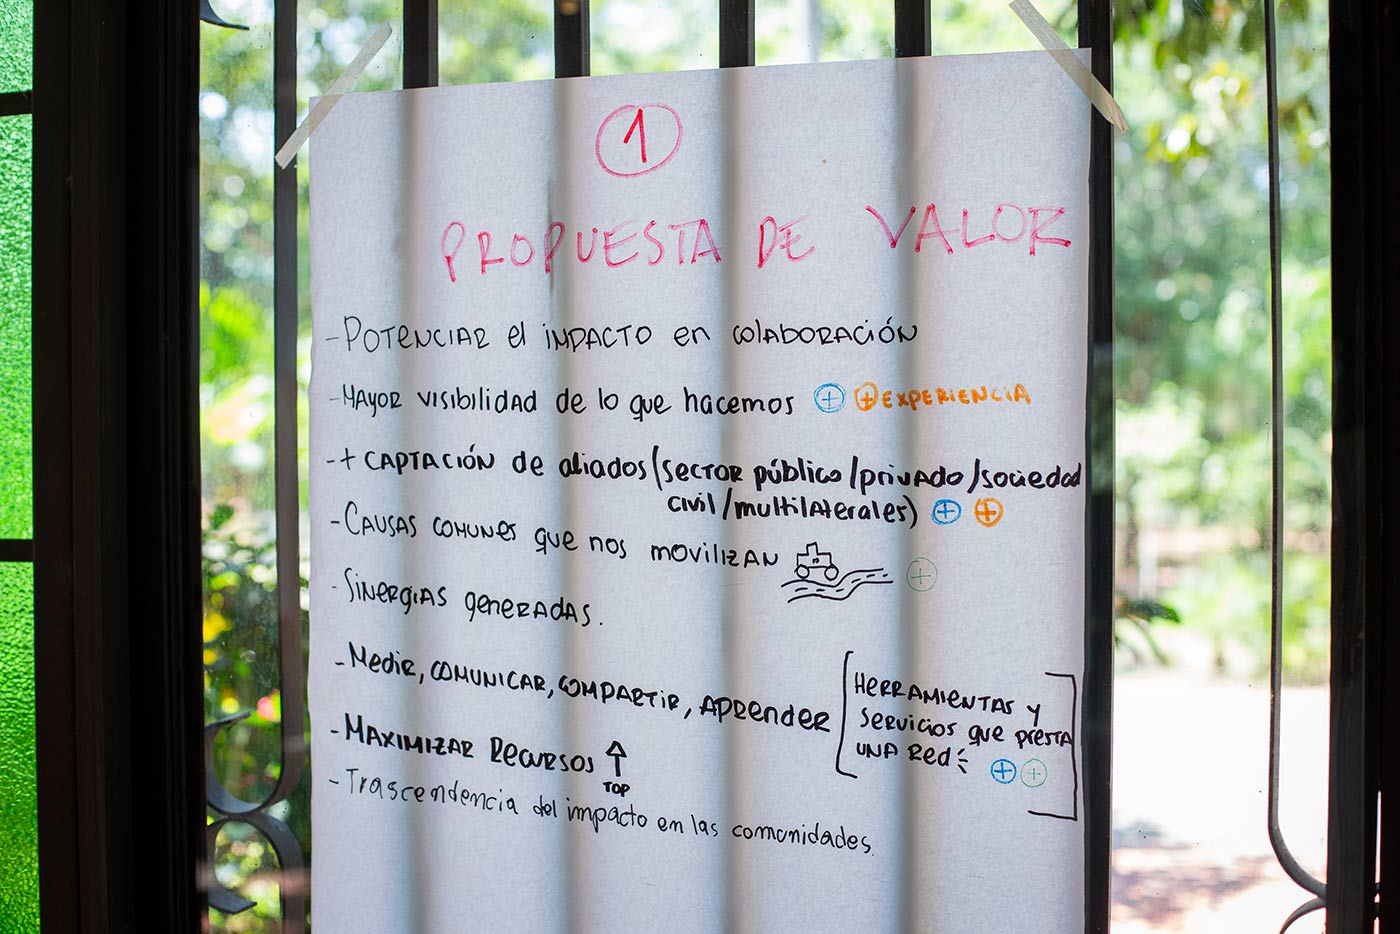 1
PROPUESTA DE VALOR
- POTENCIAR el IMPACTO en COLABORACIÓN
- MAYOR VISIBILIDAD de lo que hacemos + + EXPERIENCIA
- + CAPTACIÓN de aliados/(sector público/privado/sociedad
civil/multilaterales) + +
- CAUSAS COMUNES que nos movilizan +
- SINERGIAS generadas.
- Medir, COMUNICAR, COMPARTIR, APRENDER
[HERRAMIENTAS y
SERVICIOS que PRESTA
UNA Red + +]
- MAXIMIZAR RECURSOS ↑
TOP
- Trascendencia del impacto en las comunidades.